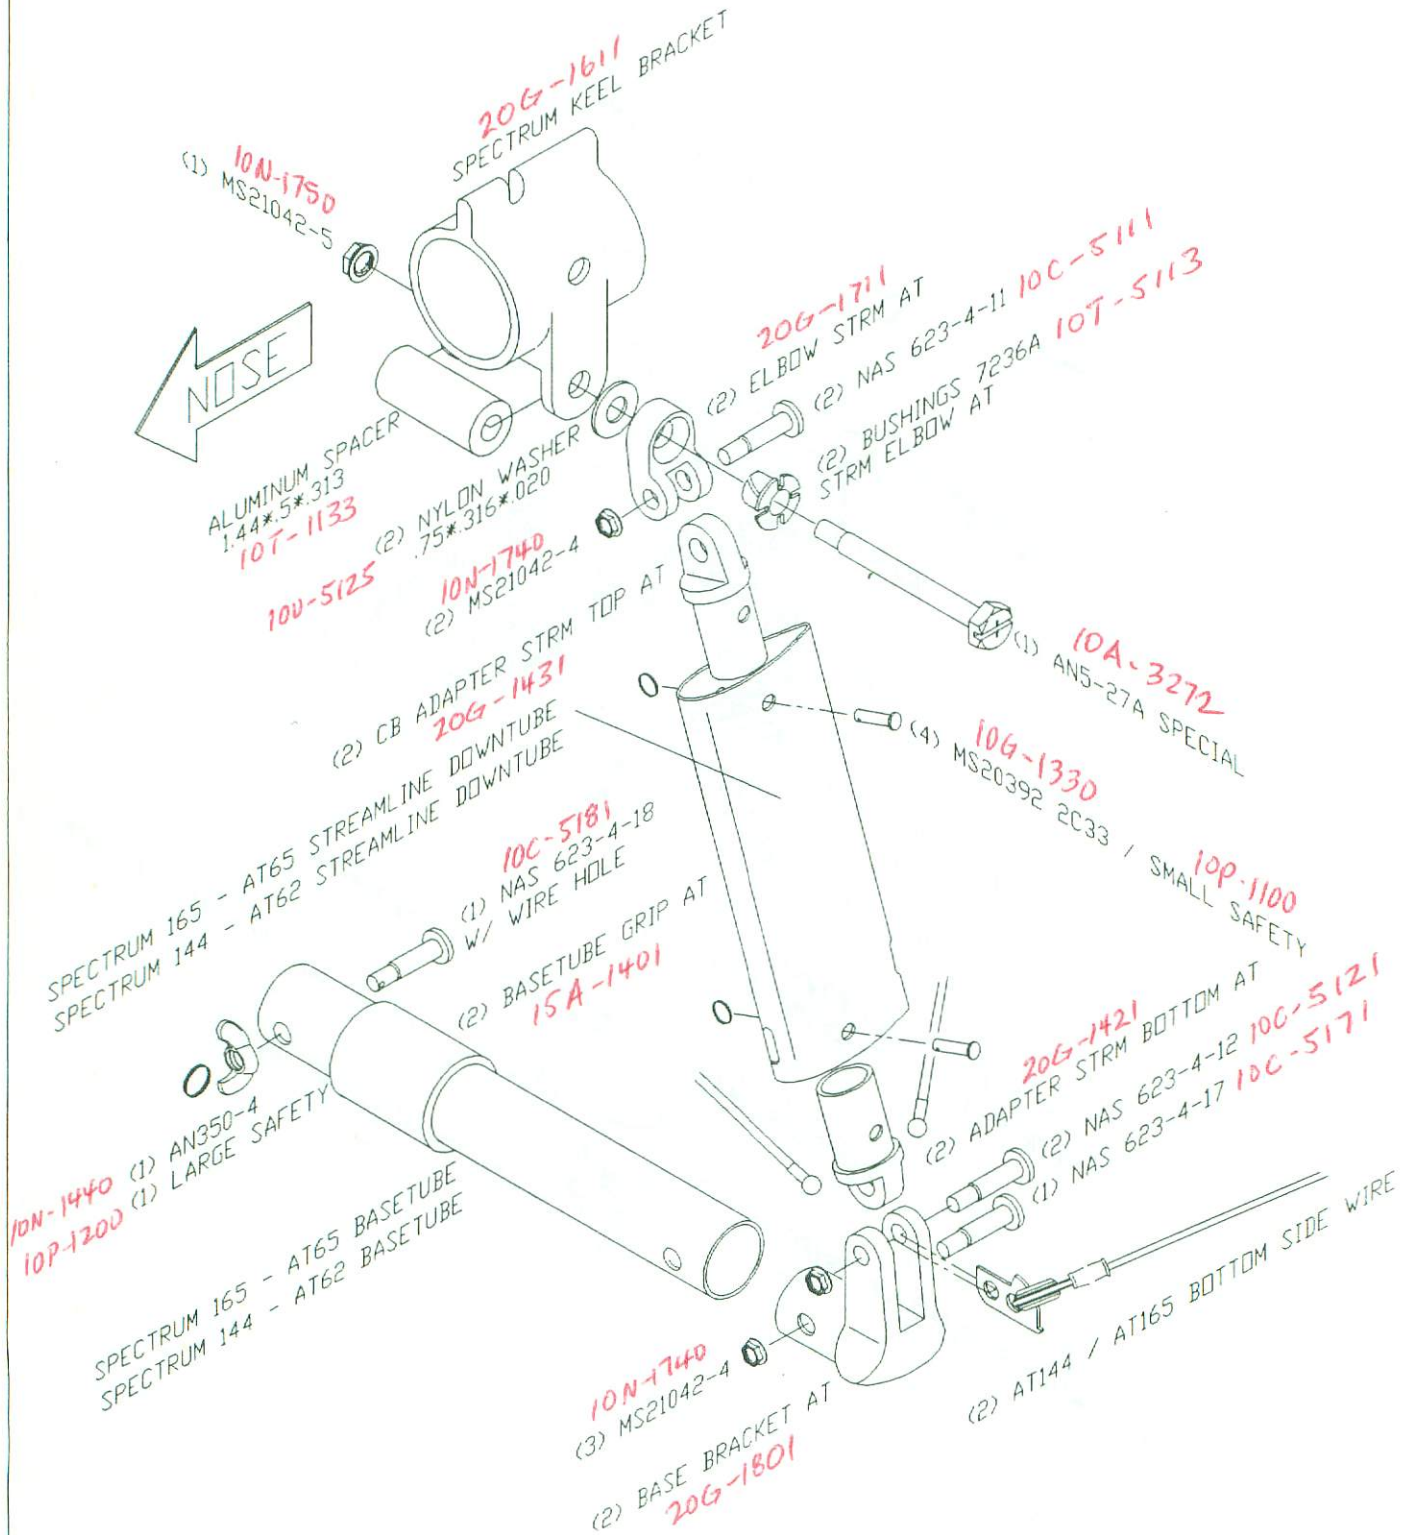 20G-1611
SPECTRUM KEEL BRACKET
10N-1750
(1) MS21042-5
NOSE
ALUMINUM SPACER
1.44*.5*.313
10T-1133
(2) NYLON WASHER
.75*.316*.020
10U-5125
10N-1740
(2) MS21042-4
20G-1711
(2) ELBOW STRM AT
(2) NAS 623-4-11 10C-5111
(2) BUSHINGS 7236A 10T-5113
STRM ELBOW AT
10A-3272
(1) AN5-27A SPECIAL
(2) CB ADAPTER STRM TOP AT
20G-1431
10G-1330 10P-1100
(4) MS20392 2C33 / SMALL SAFETY
SPECTRUM 165 - AT65 STREAMLINE DOWNTUBE
SPECTRUM 144 - AT62 STREAMLINE DOWNTUBE
10C-5181
(1) NAS 623-4-18
W/ WIRE HOLE
(2) BASETUBE GRIP AT
15A-1401
10N-1440 (1) AN350-4
10P-1200 (1) LARGE SAFETY
SPECTRUM 165 - AT65 BASETUBE
SPECTRUM 144 - AT62 BASETUBE
20G-1421
(2) ADAPTER STRM BOTTOM AT
(2) NAS 623-4-12 10C-5121
(1) NAS 623-4-17 10C-5171
(2) AT144 / AT165 BOTTOM SIDE WIRE
10N-1740
(3) MS21042-4
(2) BASE BRACKET AT
20G-1801